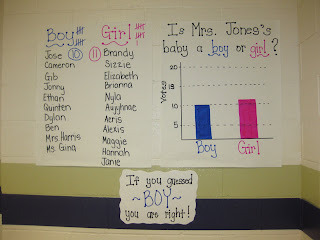 Boy Girl
10 11
Jose
Cameron
Gib
Jonny
Ethan
Quinten
Dylan
Ben
Mrs. Harris
Ms. Gina
Brandy
Sizzie
Elizabeth
Brianna
Nyla
Aeris
Alexis
Maggie
Hannah
Janie
Is Mrs. Jones's
baby a boy or girl?
Votes
20
15
10
5
Boy Girl
If you guessed
~BOY~
you are right!